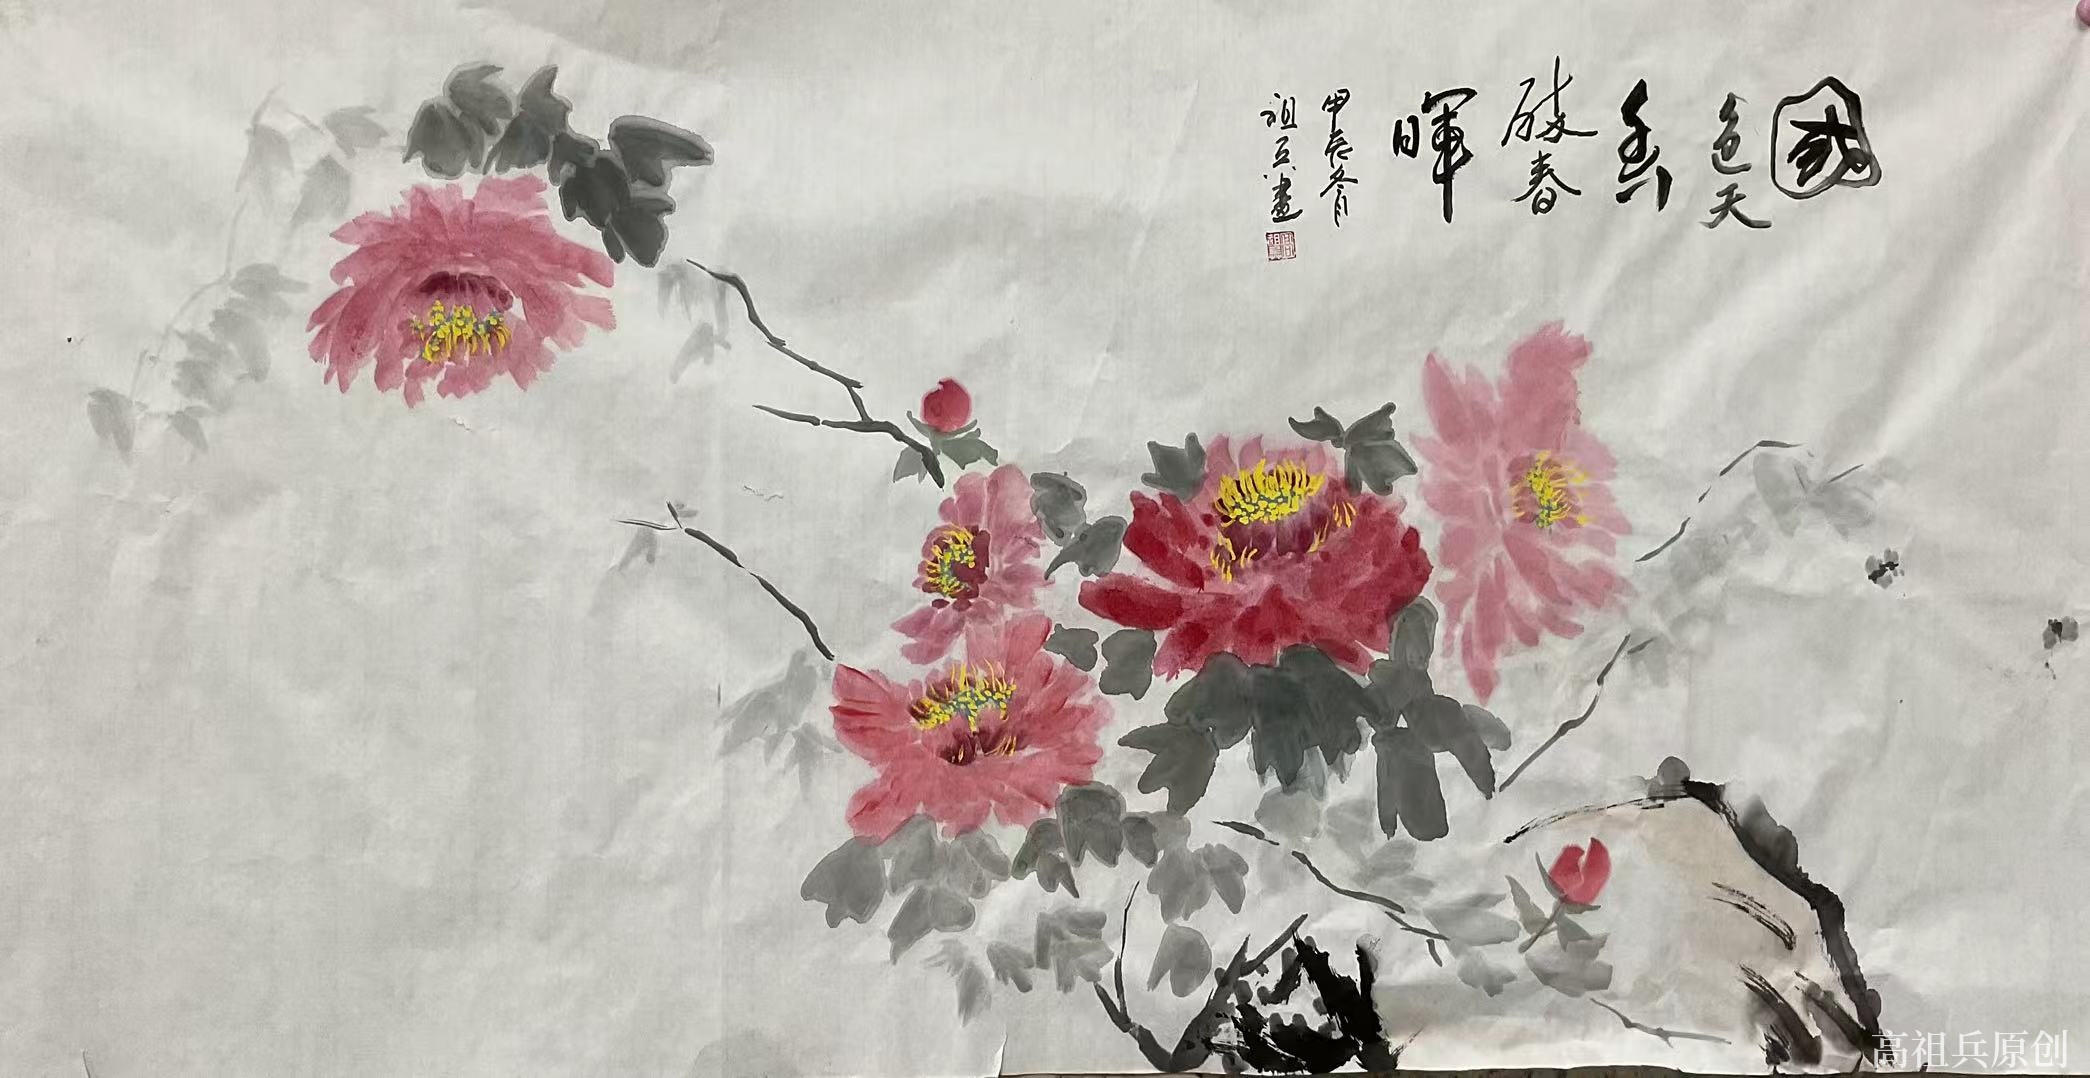 國
色天
香
春
暉
甲辰冬月
祖兵畫
高祖兵原创